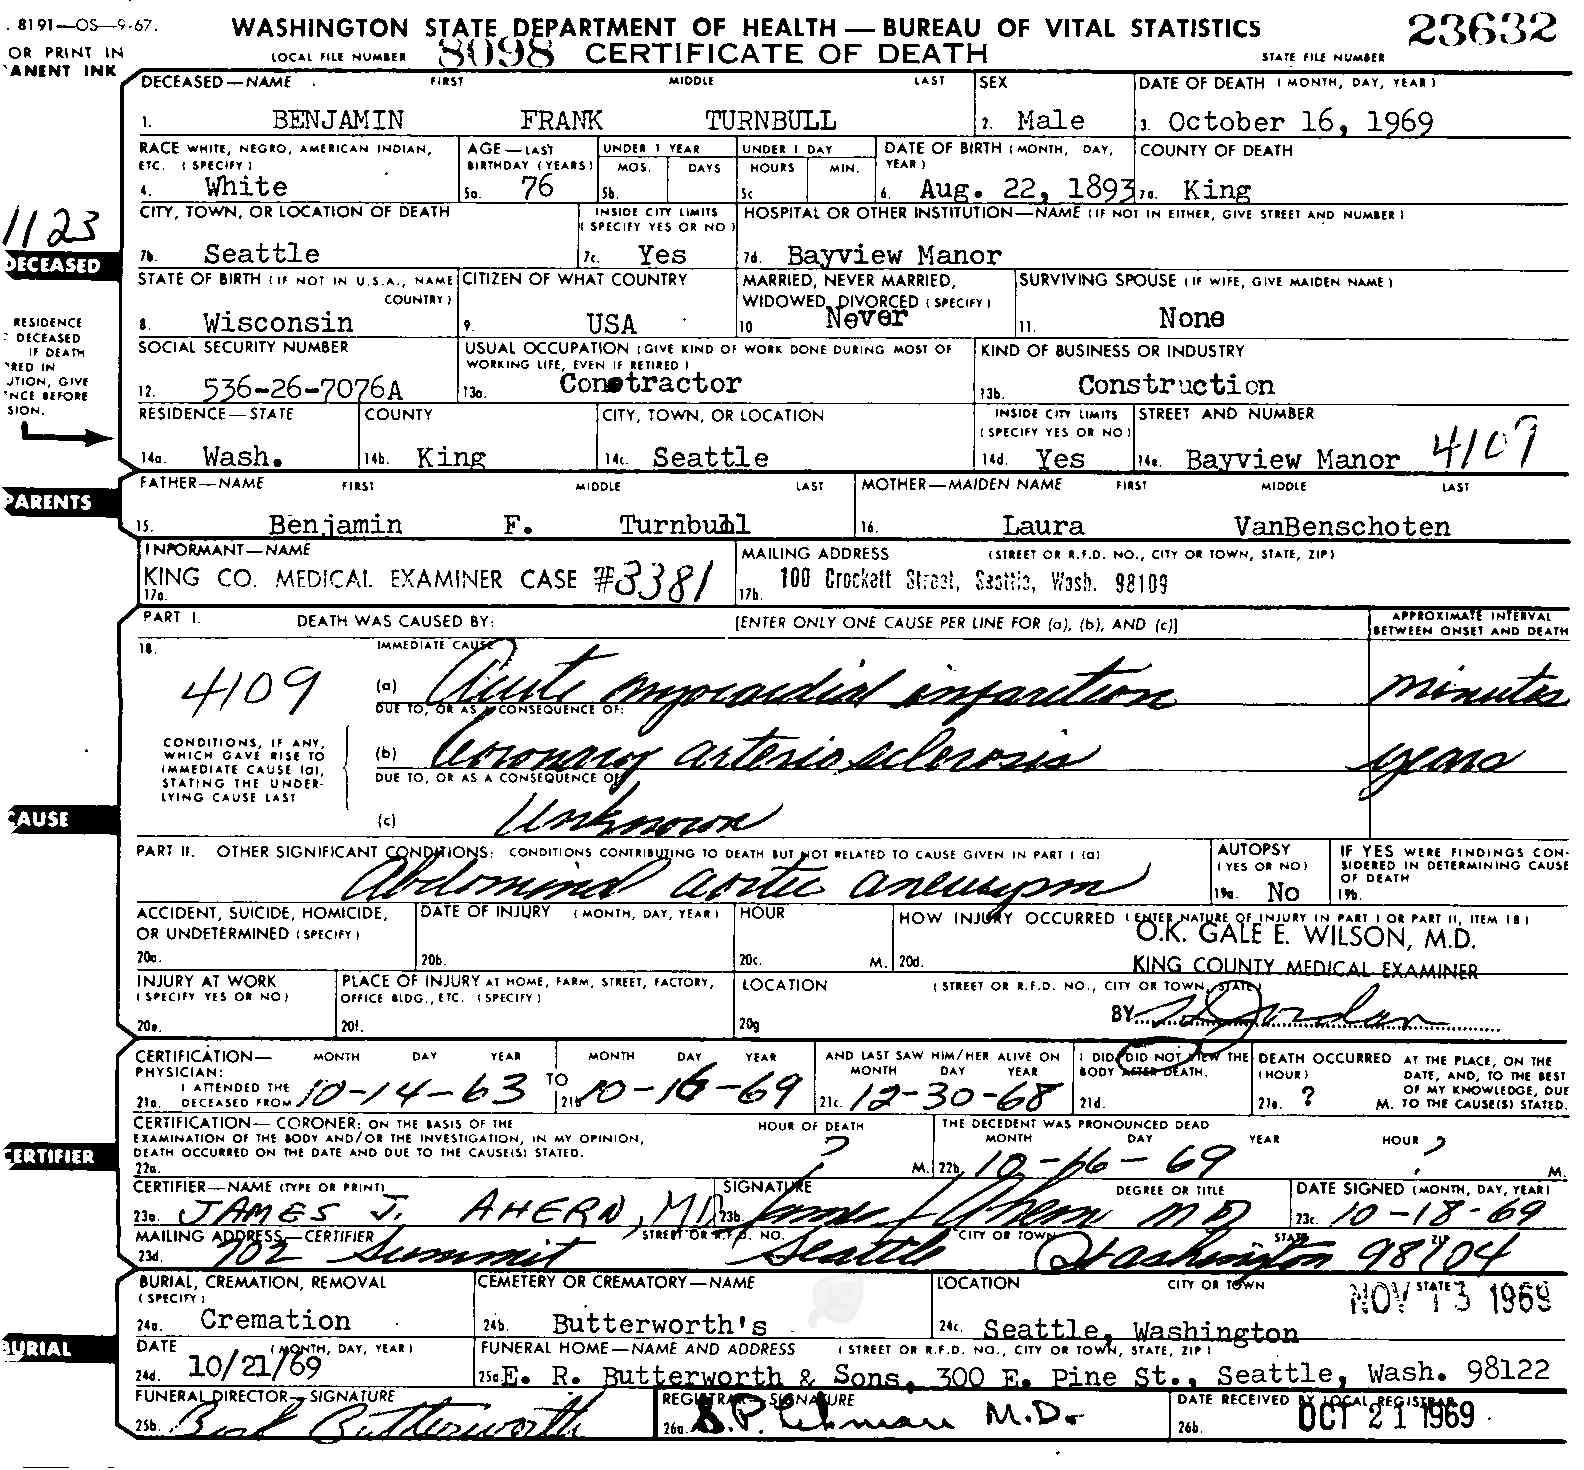 . 8191—OS—9-67.
WASHINGTON STATE DEPARTMENT OF HEALTH — BUREAU OF VITAL STATISTICS
23632
OR PRINT IN
ANENT INK
LOCAL FILE NUMBER 8098 CERTIFICATE OF DEATH STATE FILE NUMBER
DECEASED—NAME FIRST MIDDLE LAST SEX DATE OF DEATH (MONTH, DAY, YEAR)
1. BENJAMIN FRANK TURNBULL 2. Male 3. October 16, 1969
RACE WHITE, NEGRO, AMERICAN INDIAN, ETC. (SPECIFY) AGE—LAST BIRTHDAY (YEARS) UNDER 1 YEAR UNDER 1 DAY DATE OF BIRTH (MONTH, DAY, YEAR) COUNTY OF DEATH
MOS. DAYS HOURS MIN.
4. White 5a. 76 5b. 5c 6. Aug. 22, 1893 7a. King
1123
CITY, TOWN, OR LOCATION OF DEATH INSIDE CITY LIMITS (SPECIFY YES OR NO) HOSPITAL OR OTHER INSTITUTION—NAME (IF NOT IN EITHER, GIVE STREET AND NUMBER)
DECEASED
7b. Seattle 7c. Yes 7d. Bayview Manor
STATE OF BIRTH (IF NOT IN U.S.A., NAME COUNTRY) CITIZEN OF WHAT COUNTRY MARRIED, NEVER MARRIED, WIDOWED, DIVORCED (SPECIFY) SURVIVING SPOUSE (IF WIFE, GIVE MAIDEN NAME)
8. Wisconsin 9. USA 10 Never 11. None
RESIDENCE
DECEASED
IF DEATH
RED IN
UTION, GIVE
NCE BEFORE
SION.
SOCIAL SECURITY NUMBER USUAL OCCUPATION (GIVE KIND OF WORK DONE DURING MOST OF WORKING LIFE, EVEN IF RETIRED) KIND OF BUSINESS OR INDUSTRY
12. 536-26-7076A 13a. Contractor 13b. Construction
RESIDENCE—STATE COUNTY CITY, TOWN, OR LOCATION INSIDE CITY LIMITS (SPECIFY YES OR NO) STREET AND NUMBER
14a. Wash. 14b. King 14c. Seattle 14d. Yes 14e. Bayview Manor 4109
PARENTS
FATHER—NAME FIRST MIDDLE LAST MOTHER—MAIDEN NAME FIRST MIDDLE LAST
15. Benjamin F. Turnbull 16. Laura VanBenschoten
INFORMANT—NAME MAILING ADDRESS (STREET OR R.F.D. NO., CITY OR TOWN, STATE, ZIP)
KING CO. MEDICAL EXAMINER CASE #3381
17a. 17b. 100 Crockett Street, Seattle, Wash. 98109
PART I. DEATH WAS CAUSED BY: [ENTER ONLY ONE CAUSE PER LINE FOR (a), (b), AND (c)] APPROXIMATE INTERVAL BETWEEN ONSET AND DEATH
18. IMMEDIATE CAUSE
4109 (a) Acute myocardial infarction minutes
DUE TO, OR AS A CONSEQUENCE OF:
CONDITIONS, IF ANY, WHICH GAVE RISE TO IMMEDIATE CAUSE (a), STATING THE UNDERLYING CAUSE LAST
(b) Coronary arteriosclerosis years
DUE TO, OR AS A CONSEQUENCE OF:
CAUSE
(c) Unknown
PART II. OTHER SIGNIFICANT CONDITIONS: CONDITIONS CONTRIBUTING TO DEATH BUT NOT RELATED TO CAUSE GIVEN IN PART I (a) AUTOPSY (YES OR NO) IF YES WERE FINDINGS CONSIDERED IN DETERMINING CAUSE OF DEATH
Abdominal aortic aneurysm 19a. No 19b.
ACCIDENT, SUICIDE, HOMICIDE, OR UNDETERMINED (SPECIFY) DATE OF INJURY (MONTH, DAY, YEAR) HOUR HOW INJURY OCCURRED (ENTER NATURE OF INJURY IN PART I OR PART II, ITEM 18)
O.K. GALE E. WILSON, M.D.
20a. 20b. 20c. M. 20d. KING COUNTY MEDICAL EXAMINER
INJURY AT WORK (SPECIFY YES OR NO) PLACE OF INJURY AT HOME, FARM, STREET, FACTORY, OFFICE BLDG., ETC. (SPECIFY) LOCATION (STREET OR R.F.D. NO., CITY OR TOWN, STATE)
20e. 20f. 20g BY Jordan
CERTIFICATION—PHYSICIAN: MONTH DAY YEAR MONTH DAY YEAR AND LAST SAW HIM/HER ALIVE ON MONTH DAY YEAR I DID/DID NOT VIEW THE BODY AFTER DEATH. DEATH OCCURRED (HOUR) AT THE PLACE, ON THE DATE, AND, TO THE BEST OF MY KNOWLEDGE, DUE TO THE CAUSE(S) STATED.
21a. I ATTENDED THE DECEASED FROM 10-14-63 TO 21b 10-16-69 21c. 12-30-68 21d. 21e. ? M.
CERTIFICATION—CORONER: ON THE BASIS OF THE EXAMINATION OF THE BODY AND/OR THE INVESTIGATION, IN MY OPINION, DEATH OCCURRED ON THE DATE AND DUE TO THE CAUSE(S) STATED. HOUR OF DEATH THE DECEDENT WAS PRONOUNCED DEAD MONTH DAY YEAR HOUR
CERTIFIER
22a. ? M. 22b. 10-16-69 ? M.
CERTIFIER—NAME (TYPE OR PRINT) SIGNATURE DEGREE OR TITLE DATE SIGNED (MONTH, DAY, YEAR)
23a. JAMES J. AHERN, MD 23b. James J Ahern MD 23c. 10-18-69
MAILING ADDRESS—CERTIFIER STREET OR R.F.D. NO. CITY OR TOWN STATE ZIP
23d. 702 Summit Seattle Washington 98104
BURIAL, CREMATION, REMOVAL (SPECIFY) CEMETERY OR CREMATORY—NAME LOCATION CITY OR TOWN STATE
NOV 13 1969
24a. Cremation 24b. Butterworth's 24c. Seattle, Washington
BURIAL
DATE (MONTH, DAY, YEAR) FUNERAL HOME—NAME AND ADDRESS (STREET OR R.F.D. NO., CITY OR TOWN, STATE, ZIP)
24d. 10/21/69 25a E. R. Butterworth & Sons, 300 E. Pine St., Seattle, Wash. 98122
FUNERAL DIRECTOR—SIGNATURE REGISTRAR—SIGNATURE DATE RECEIVED BY LOCAL REGISTRAR
25b. Butterworth 26a. S.P. Lehman M.D. 26b. OCT 21 1969